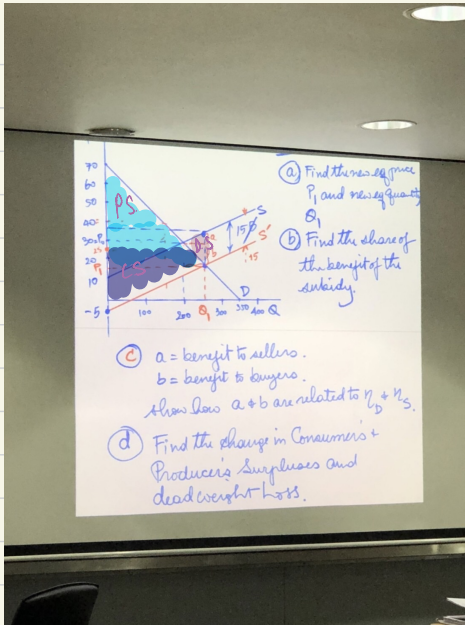 70
60
50
40
30 P₀
20
P₁
10
-5
PS
CS
DS
15 $
S
S'
15
D
100 200 Q₁ 300 350 400 Q
(a) Find the new eq price
P₁ and new eq quantity
Q₁
(b) Find the share of
the benefit of the
subsidy.
(c) a = benefit to sellers.
b = benefit to buyers.
show how a & b are related to η_D & η_S.
(d) Find the change in Consumer's +
Producer's Surpluses and
deadweight Loss.